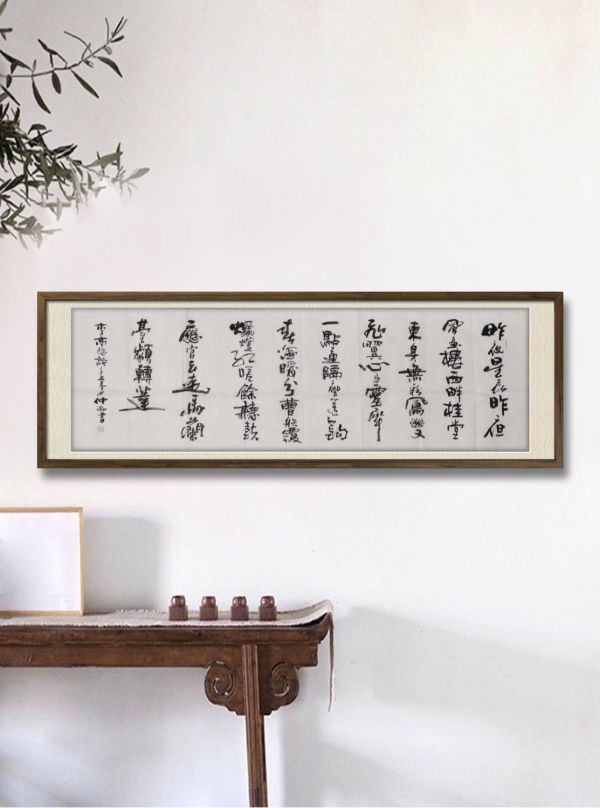 昨夜星辰昨夜
風畫樓西畔桂堂
東身無彩鳳雙
飛翼心有靈犀
一點通隔座送鉤
春酒暖分曹射覆
蠟燈紅嗟餘聽鼓
應官去走馬蘭
臺類轉蓬
李商隱詩